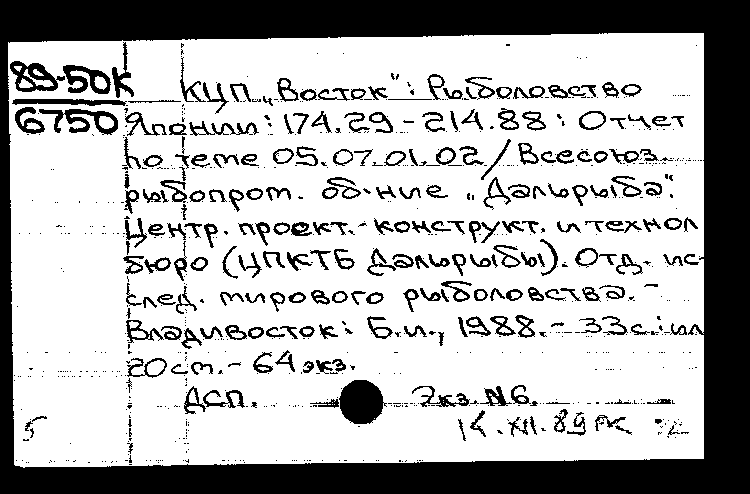 89-50К
6750
КЦП „Восток": Рыболовство
Японии: 174.29-214.88: Отчет
по теме 05.07.01.02/Всесоюз.
рыбопром. об-ние „Дальрыба".
Центр. проект.-конструкт. и технол
бюро (ЦПКТБ Дальрыбы). Отд. ис-
след. мирового рыболовства.-
Владивосток: Б.и., 1988.- 33с.: ил
20см.- 64 экз.
ДСП. Экз. №6.
5 14.XII.89